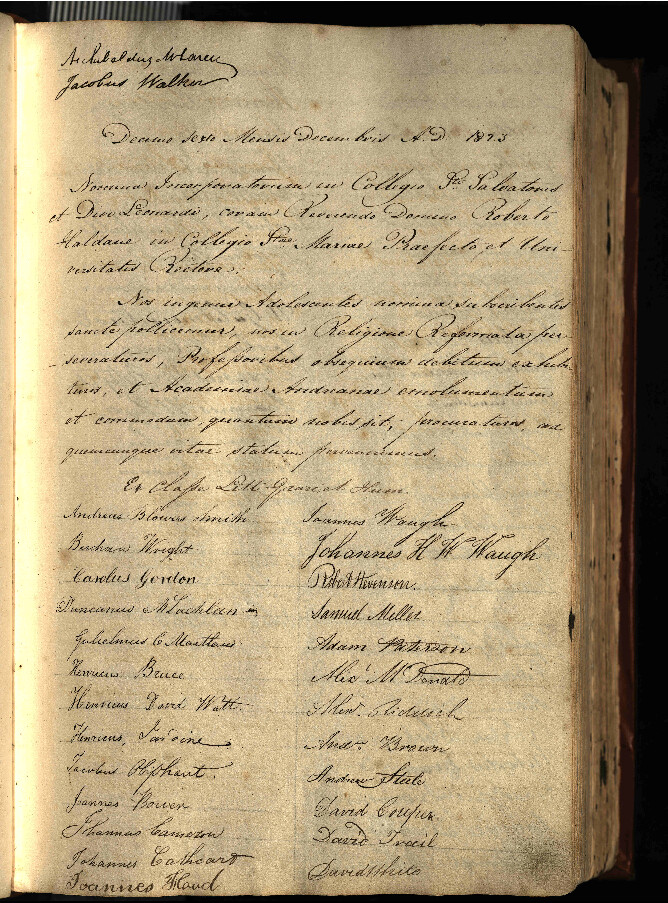 Archibaldus McLaren
Jacobus Walker
Decimo sexto Mensis Decembris A.D. 1823
Nomina Incorporatorum in Collegio Sti Salvatoris
et Divi Leonardi, coram Reverendo Domino Roberto
Haldane in Collegio Stae Mariae Praefecto, et Uni-
versitatis Rectore.
Nos ingenui Adolescentes nomina subscribentes
sancte pollicemur, nos in Religione Reformata per-
severaturos, Professoribus obsequium debitum exhibi-
turos, et Academiae Andreanae emolumentum
et commodum quantum nobis sit, procuraturos, ad
quemcunque vitae statum pervenerimus.
Ex Classe Litt. Graec. et Hum.
Andreas Blowers Smith
Wright
Carolus Gordon
Duncanus McLachlan
Gulielmus C Maitland
Henricus Bruce
Henricus David Watt
Henricus Jardine
Jacobus Oliphant.
Joannes Bower
Johannes Cameron
Johannes Cathcart
Joannes Hood
Joannes Waugh
Johannes H W Waugh
Robert Stevenson.
Samuel Miller
Adam Paterson
Alexr McDonald
Riddoch
Andw. Brown
Andrew Steele
David Couper
David Traill
David White